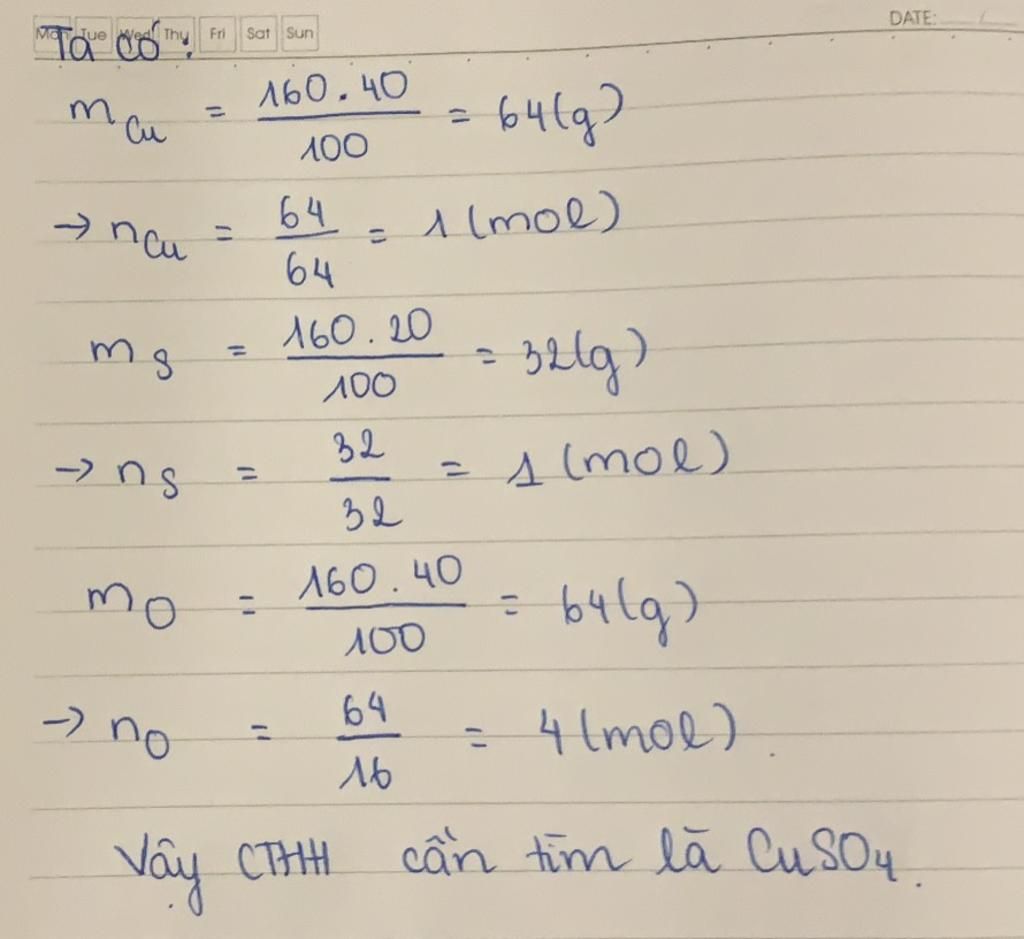 Mon Tue Wed Thu Fri Sat Sun
DATE: / 
Ta có:
m_Cu = 160.40/100 = 64(g)
→ n_Cu = 64/64 = 1 (mol)
m_S = 160.20/100 = 32(g)
→ n_S = 32/32 = 1 (mol)
m_O = 160.40/100 = 64(g)
→ n_O = 64/16 = 4 (mol).
Vậy CTHH cần tìm là CuSO4.